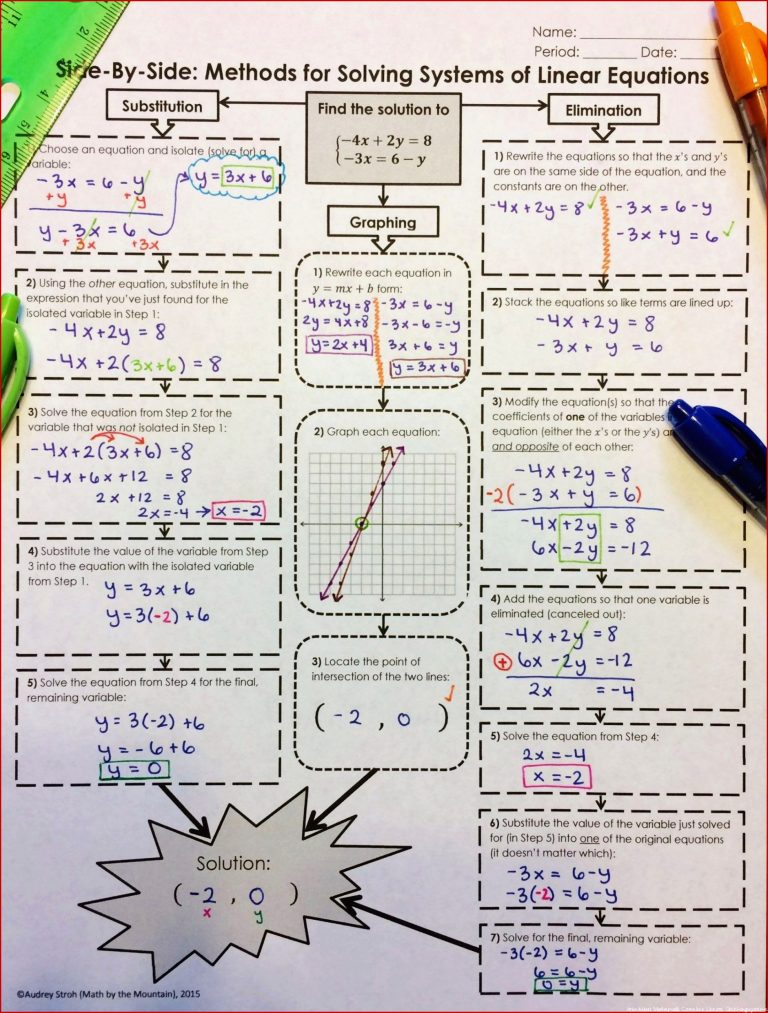 Name:
Period: Date:
Side-By-Side: Methods for Solving Systems of Linear Equations
Substitution
Choose an equation and isolate (solve for) a
variable:
-3x = 6 - y
+y +y
y - 3x = 6
+3x +3x
y = 3x + 6
2) Using the other equation, substitute in the
expression that you've just found for the
isolated variable in Step 1:
-4x+2y = 8
-4x+2(3x+6) = 8
3) Solve the equation from Step 2 for the
variable that was not isolated in Step 1:
-4x+2(3x+6) = 8
-4x+6x+12 = 8
2x+12 = 8
2x=-4 → x=-2
4) Substitute the value of the variable from Step
3 into the equation with the isolated variable
from Step 1.
y = 3x+6
y=3(-2)+6
5) Solve the equation from Step 4 for the final,
remaining variable:
y = 3(-2)+6
y = -6+6
y = 0
Find the solution to
-4x + 2y = 8
-3x = 6 - y
Graphing
1) Rewrite each equation in
y = mx + b form:
-4x+2y=8
2y=4x+8
y=2x+4
-3x=6-y
-3x-6=-y
3x+6=y
y=3x+6
2) Graph each equation:
3) Locate the point of
intersection of the two lines:
(-2, 0)
Elimination
1) Rewrite the equations so that the x's and y's
are on the same side of the equation, and the
constants are on the other.
-4x+2y=8 ✓
-3x = 6-y
-3x+y = 6 ✓
2) Stack the equations so like terms are lined up:
-4x+2y = 8
-3x + y = 6
3) Modify the equation(s) so that the
coefficients of one of the variables
equation (either the x's or the y's)
and opposite of each other:
-4x+2y = 8
-2(-3x+y = 6)
-4x+2y = 8
6x-2y = -12
4) Add the equations so that one variable is
eliminated (canceled out):
-4x+2y = 8
+ 6x-2y = -12
2x = -4
5) Solve the equation from Step 4:
2x=-4
x=-2
6) Substitute the value of the variable just solved
for (in Step 5) into one of the original equations
(it doesn't matter which):
-3x = 6-y
-3(-2) = 6-y
7) Solve for the final, remaining variable:
-3(-2) = 6-y
6=6-y
0=y
Solution:
(-2, 0)
x y
©Audrey Stroh (Math by the Mountain), 2015